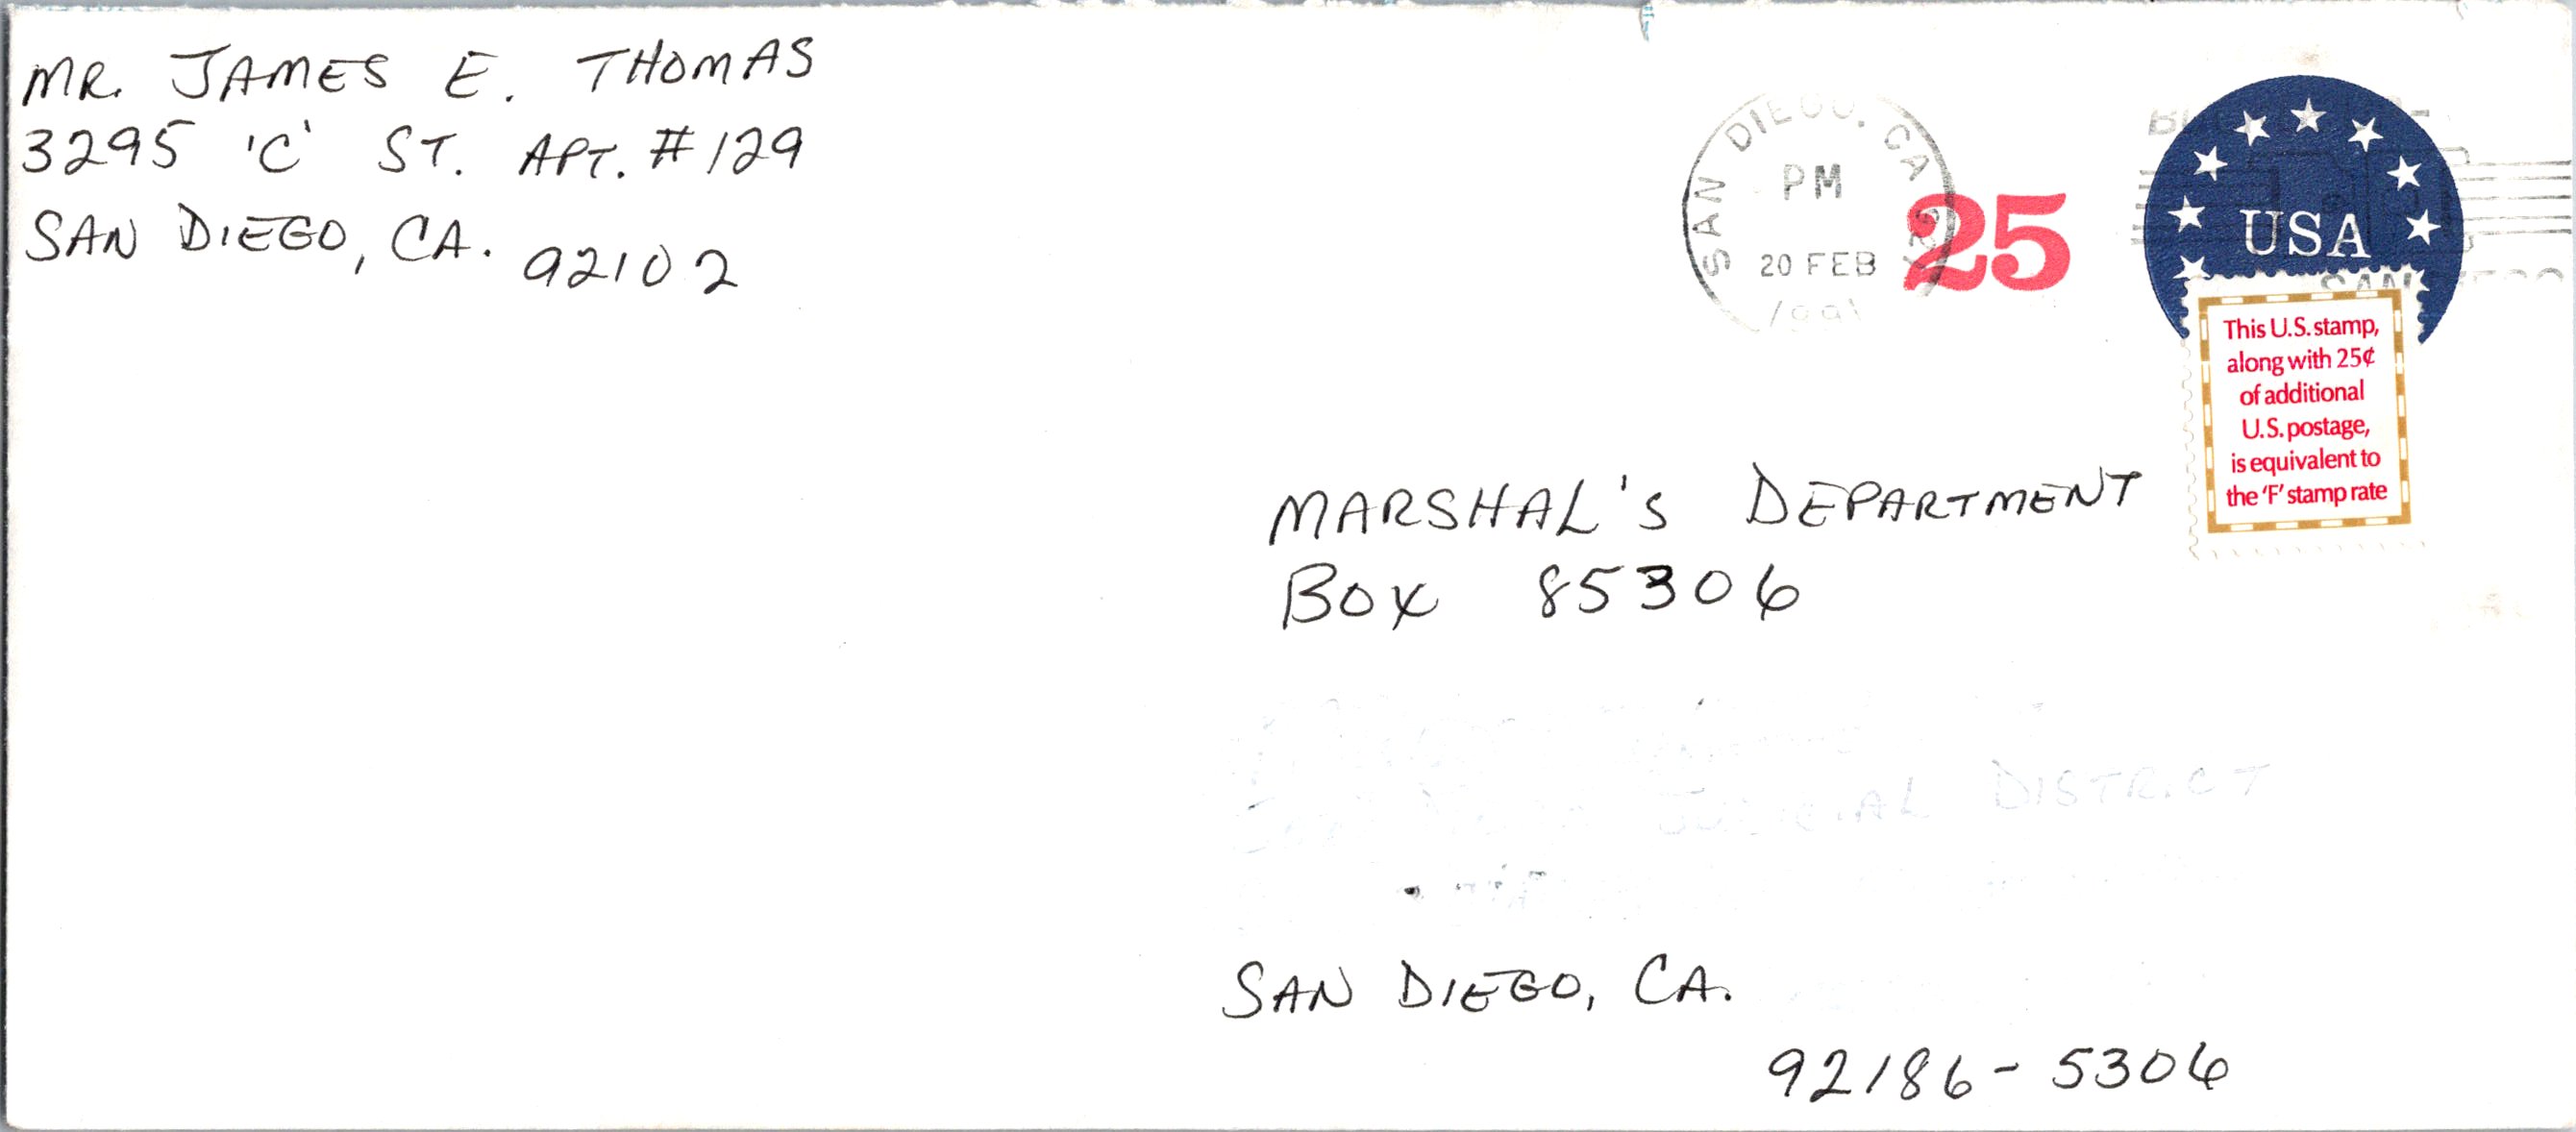 MR. JAMES E. THOMAS
3295 'C' ST. APT. #129
SAN DIEGO, CA. 92102
SAN DIEGO, CA
PM
20 FEB
1991
25
USA
SAN
This U.S. stamp,
along with 25¢
of additional
U.S. postage,
is equivalent to
the 'F' stamp rate
MARSHAL'S DEPARTMENT
BOX 85306
JUDICIAL DISTRICT
SAN DIEGO, CA.
92186-5306